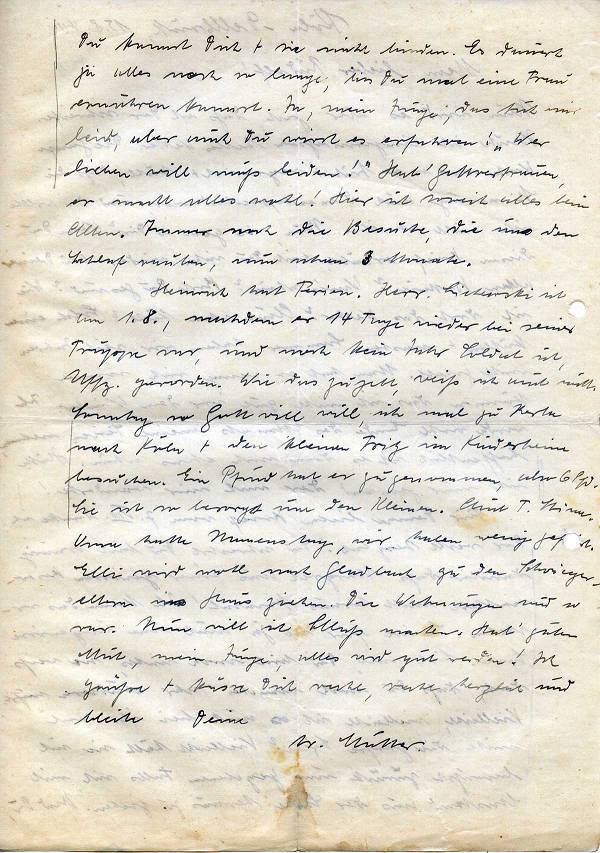 Du kannst Dich + sie nicht binden. Es dauert
ja alles noch so lange, bis Du mal eine Frau
ernähren kannst. Ja, mein Junge, das tut mir
leid, aber auch Du wirst es erfahren! „Wer
lieben will muß leiden!" Hab' Gottvertrauen,
er macht alles wohl! Hier ist soweit alles beim
Alten. Immer noch die Besuche, die uns den
Schlaf rauben, nun schon 3 Monate.
Heinrich hat Ferien. Herr ist
am 1.8., nachdem er 14 Tage wieder bei seiner
Truppe war, und noch kein Jahr Soldat ist,
Uffz. geworden. Wie das zugeht, weiß ich auch nicht.
Sonntag so Gott will will ich mal zu Herta
nach Köln + den kleinen Fritz im Kinderheim
besuchen. Ein Pfund hat er zugenommen, also 6 Pfd.
Sie ist so besorgt um den Kleinen. Auch T.
Anna hatte Namenstag, wir haben wenig
Elli wird wohl nach Gladbach zu den Schwieger-
eltern ins Haus ziehen. Die Wohnungen sind so
rar. Nun will ich Schluß machen. Hab' guten
Mut, mein Junge, alles wird gut werden! Ich
grüße + küsse Dich recht, recht herzlich und
bleibe Deine
tr. Mutter.